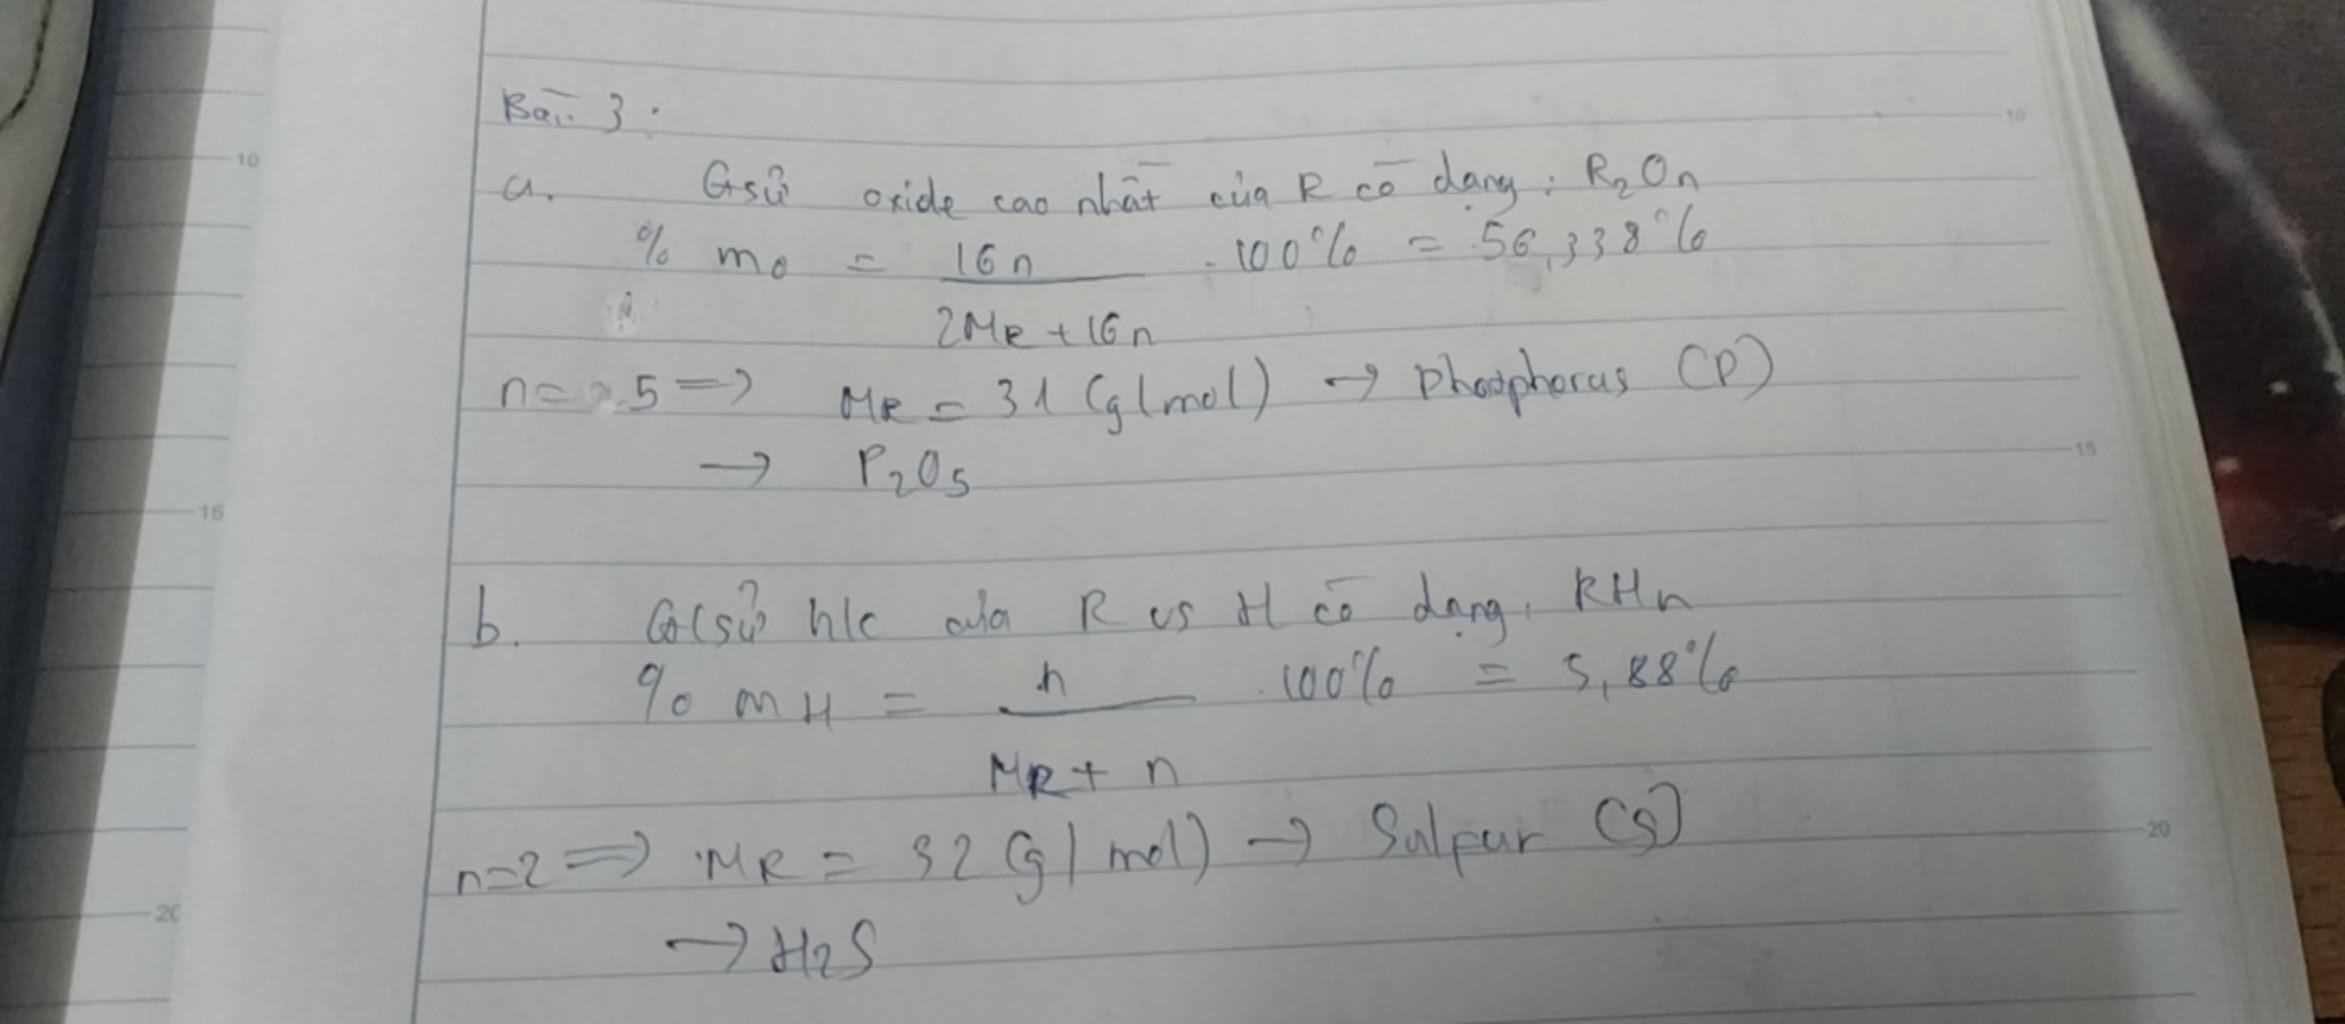 Bài 3:
a. Gsử oxide cao nhất của R có dạng: R₂On
% mO = 16n / 2MR + 16n . 100% = 56,338%
n = 5 => MR = 31 (g/mol) → Phosphorus (P)
→ P₂O₅
b. G/sử h/c của R vs H có dạng: RHn
% mH = n / MR + n . 100% = 5,88%
n=2 => MR = 32 (g/mol) → Sulpur (S)
→ H₂S
10
15
20
10
15
20